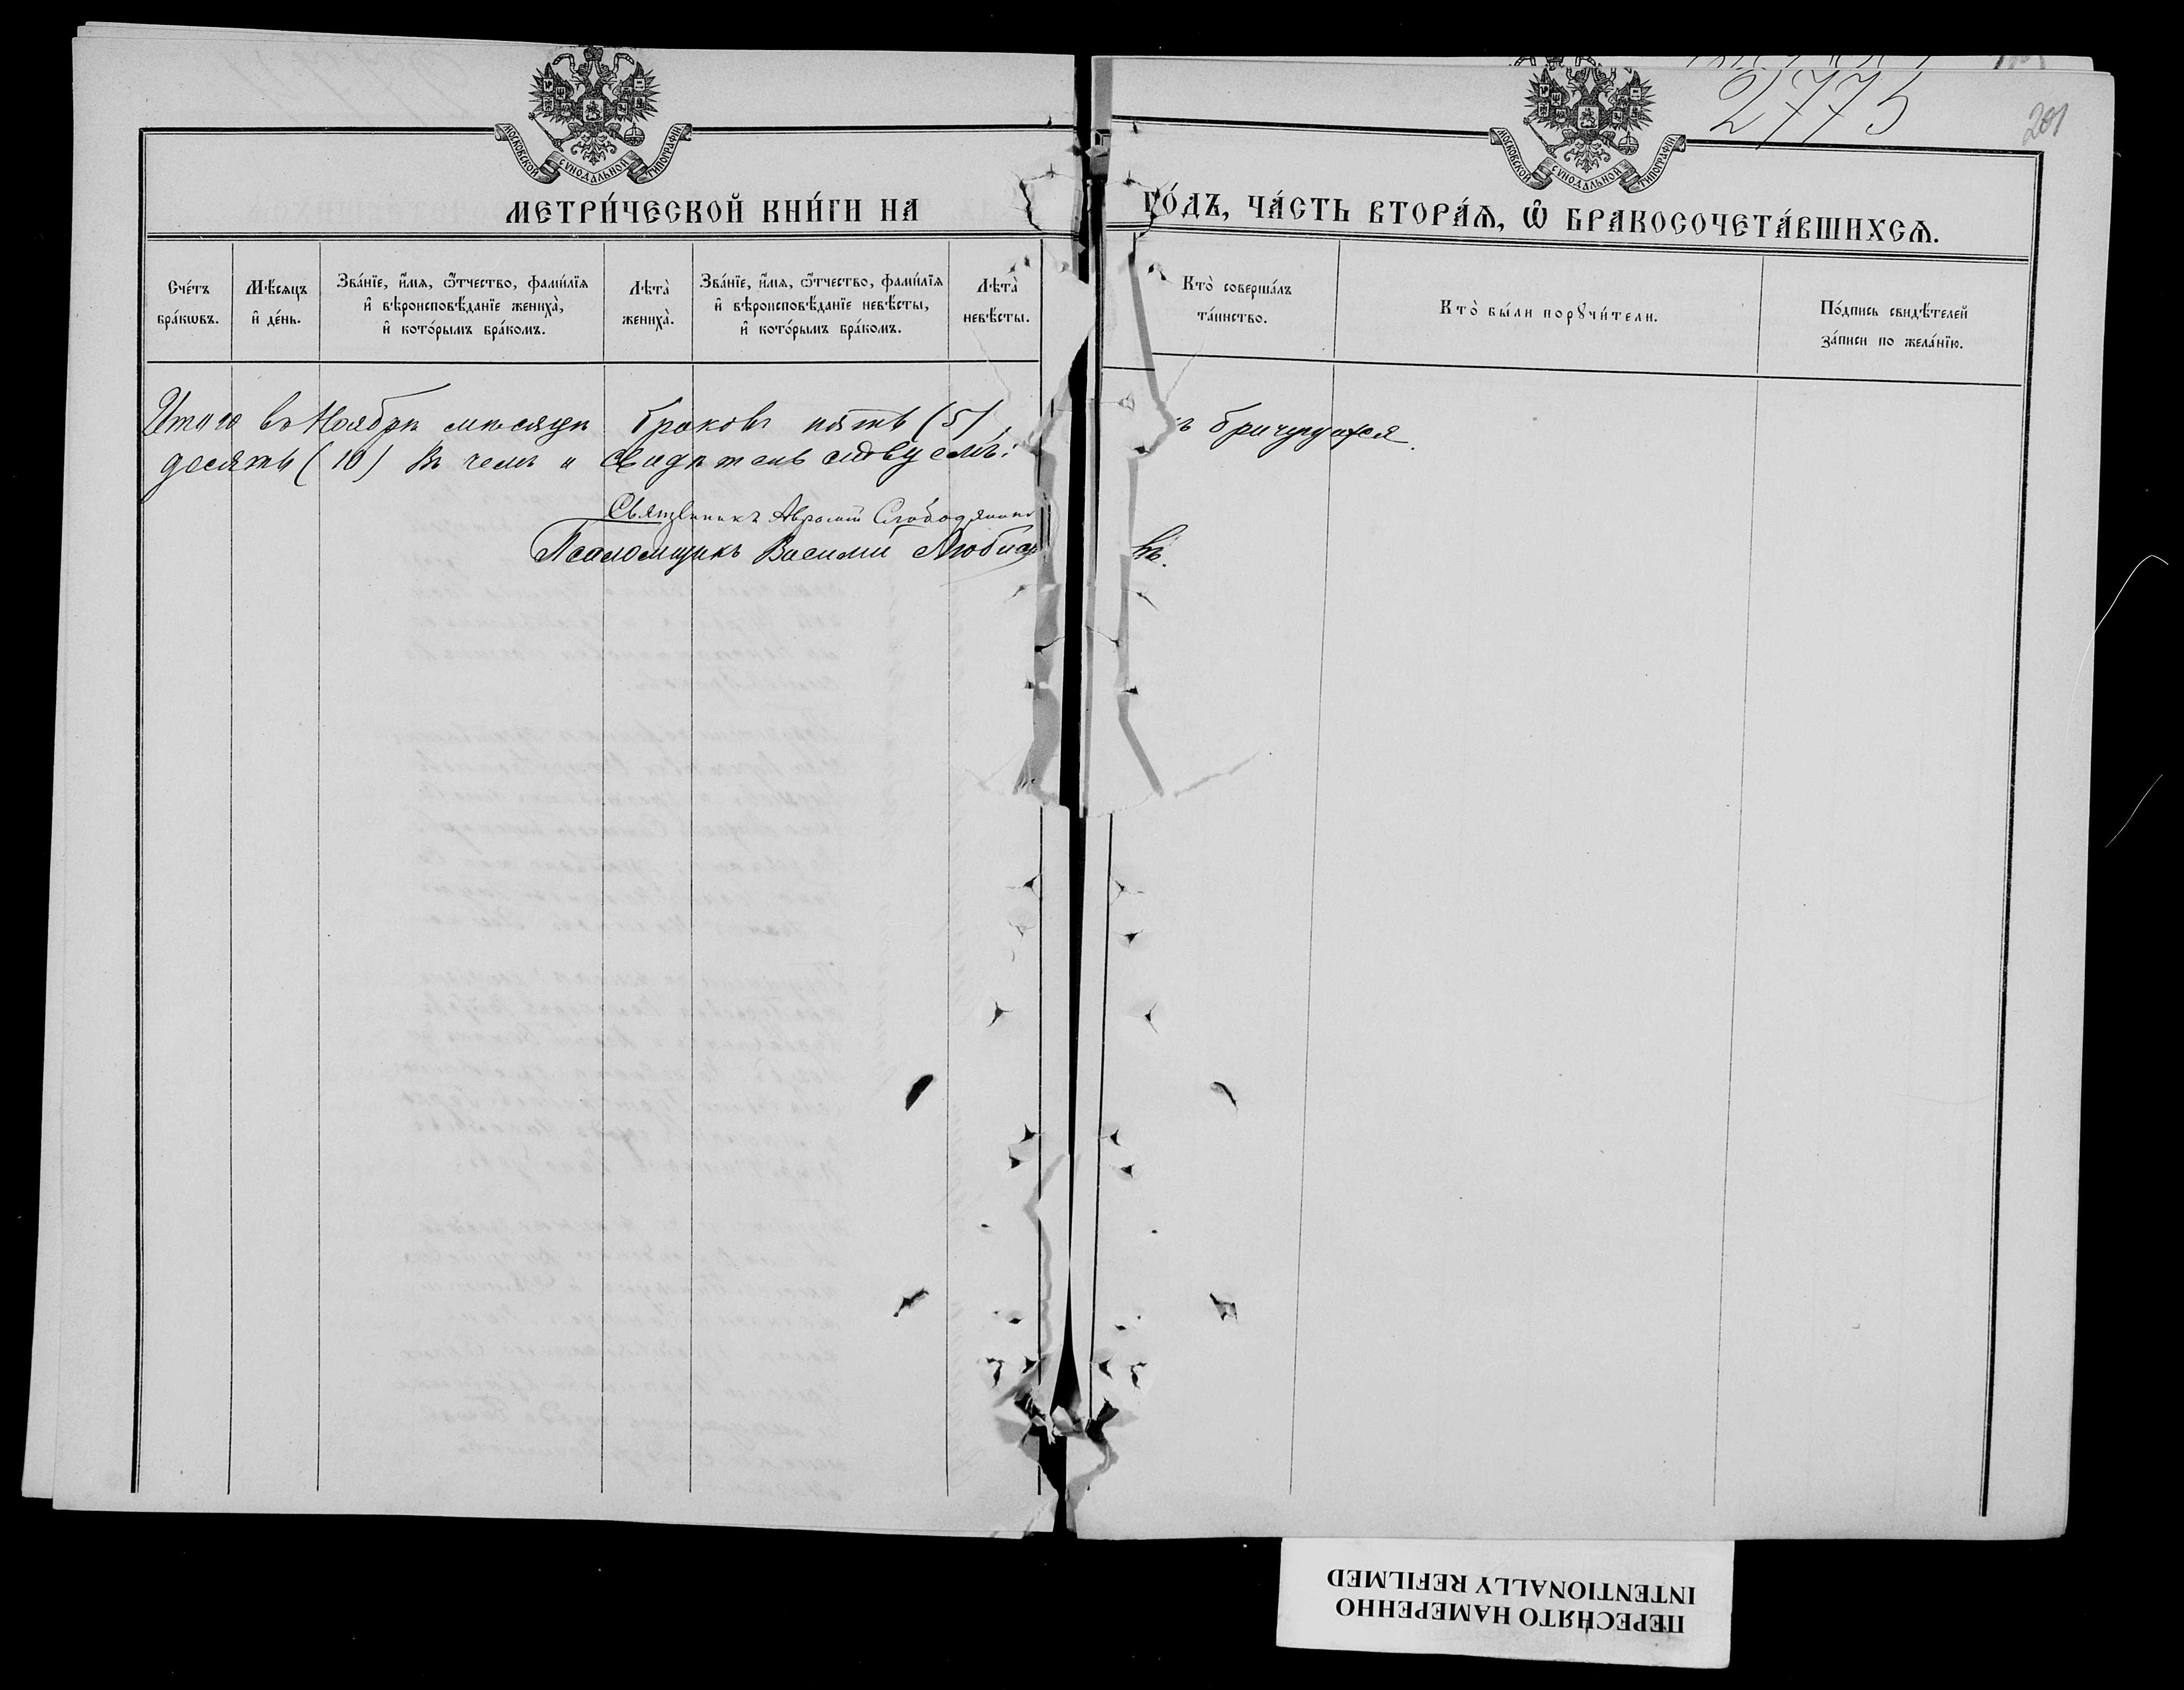 МОСКОВСКОЙ СУНОДАЛЬНОЙ ТИПОГРАФІИ
МОСКОВСКОЙ СУНОДАЛЬНОЙ ТИПОГРАФІИ
2775
201
МЕТРИ́ЧЕСКОЙ КНИ́ГИ НА ГО́ДЪ, ЧА́СТЬ ВТОРА́Ѧ, Ѡ҆ БРАКОСОЧЕТА́ВШИХСѦ.
Сче́тъ
бра́кѡвъ.
Мѣ́сяцъ
и҆ де́нь.
Зва́нїе, и҆́мѧ, ѻ҆́тчество, фами́лїѧ
и҆ вѣроисповѣ́данїе женихà,
и҆ кото́рымъ бра́комъ.
Лѣтà
женихà.
Зва́нїе, и҆́мѧ, ѻ҆́тчество, фами́лїѧ
и҆ вѣроисповѣ́данїе невѣ́сты,
и҆ кото́рымъ бра́комъ.
Лѣтà
невѣ́сты.
Кто̀ соверша́лъ
та́инство.
Кто̀ бы́ли порꙋчи́тели.
По́дпись свидѣ́телей
за́писи по жела́нїю.
Итого въ Ноябрѣ мѣсяцѣ браковъ пять (5)
десять (10) Въ чемъ и свидѣтельствуемъ:
Священникъ Аврамій
Псаломщикъ Василій
ПЕРЕСНЯТО НАМЕРЕННО
INTENTIONALLY REFILMED